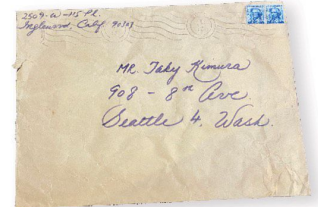 2509-W-115 Pl.
Inglewood, Calif 90303
MR. Taky Kimura
908 - 8th Ave
Seattle 4, Wash.